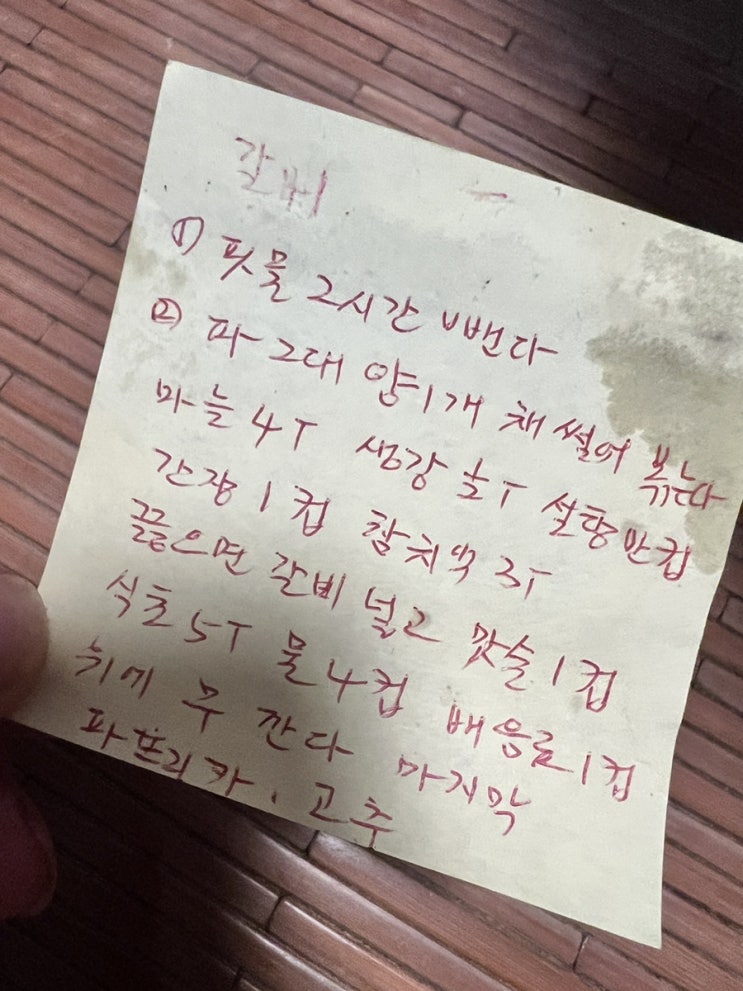 갈비
① 핏물 2시간 뺀다
② 파 2대 양 1개 채썰어 볶는다
마늘 4T 생강 ½T 설탕 반컵
간장 1컵 참치액 3T
끓으면 갈비 넣고 맛술 1컵
식초 5T 물 4컵 배음료 1컵
무 깐다 마지막
파프리카, 고추